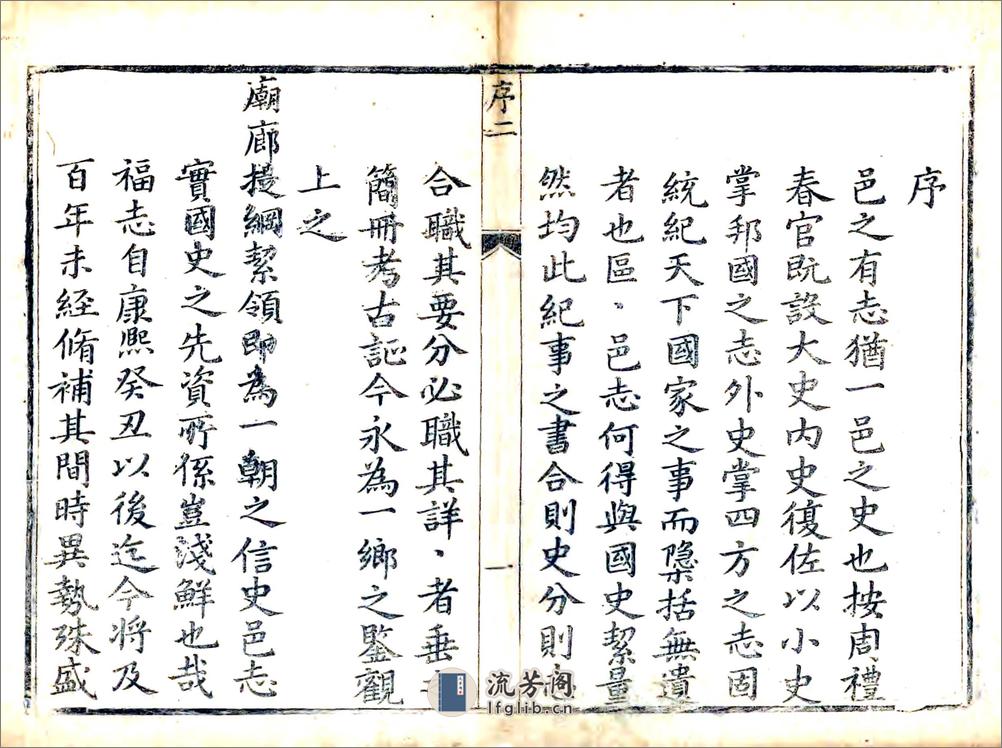 序
邑之有志猶一邑之史也按周禮
春官既設大史内史復佐以小史
掌邦國之志外史掌四方之志固
統紀天下國家之事而櫽括無遺
者也區〻邑志何得與國史絜量
然均此紀事之書合則史分則
序二
一
合職其要分必職其詳〻者垂
簡冊考古証今永為一鄉之鑒觀
上之
廟廊提綱絜領即為一朝之信史邑志
實國史之先資所係豈淺鮮也哉
福志自康熙癸丑以後迄今將及
百年未經脩補其間時異勢殊盛
流芳阁
lfglib.cn